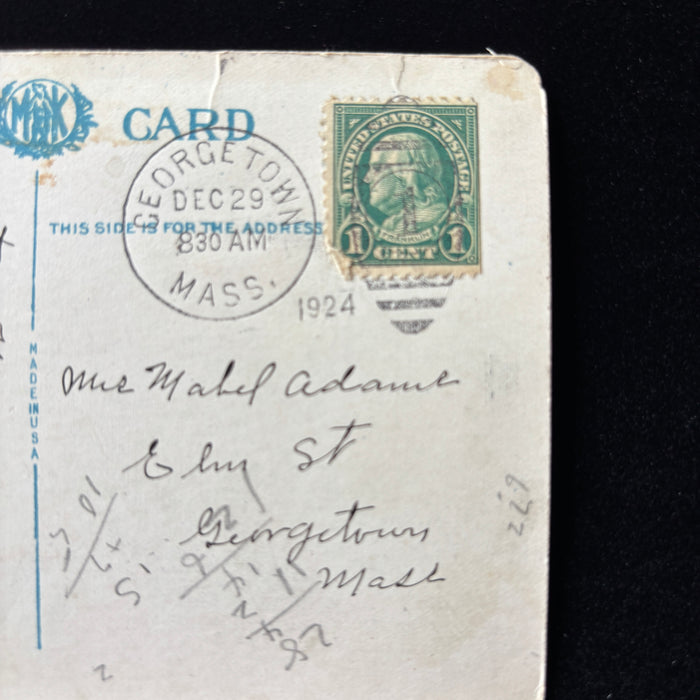 MK
CARD
UNITED STATES POSTAGE
FRANKLIN
1 CENT 1
GEORGETOWN
DEC 29
830 AM
MASS.
1924
THIS SIDE IS FOR THE ADDRESS
MADE IN USA
Mrs Mabel Adams
Elm St
Georgetown
Mass